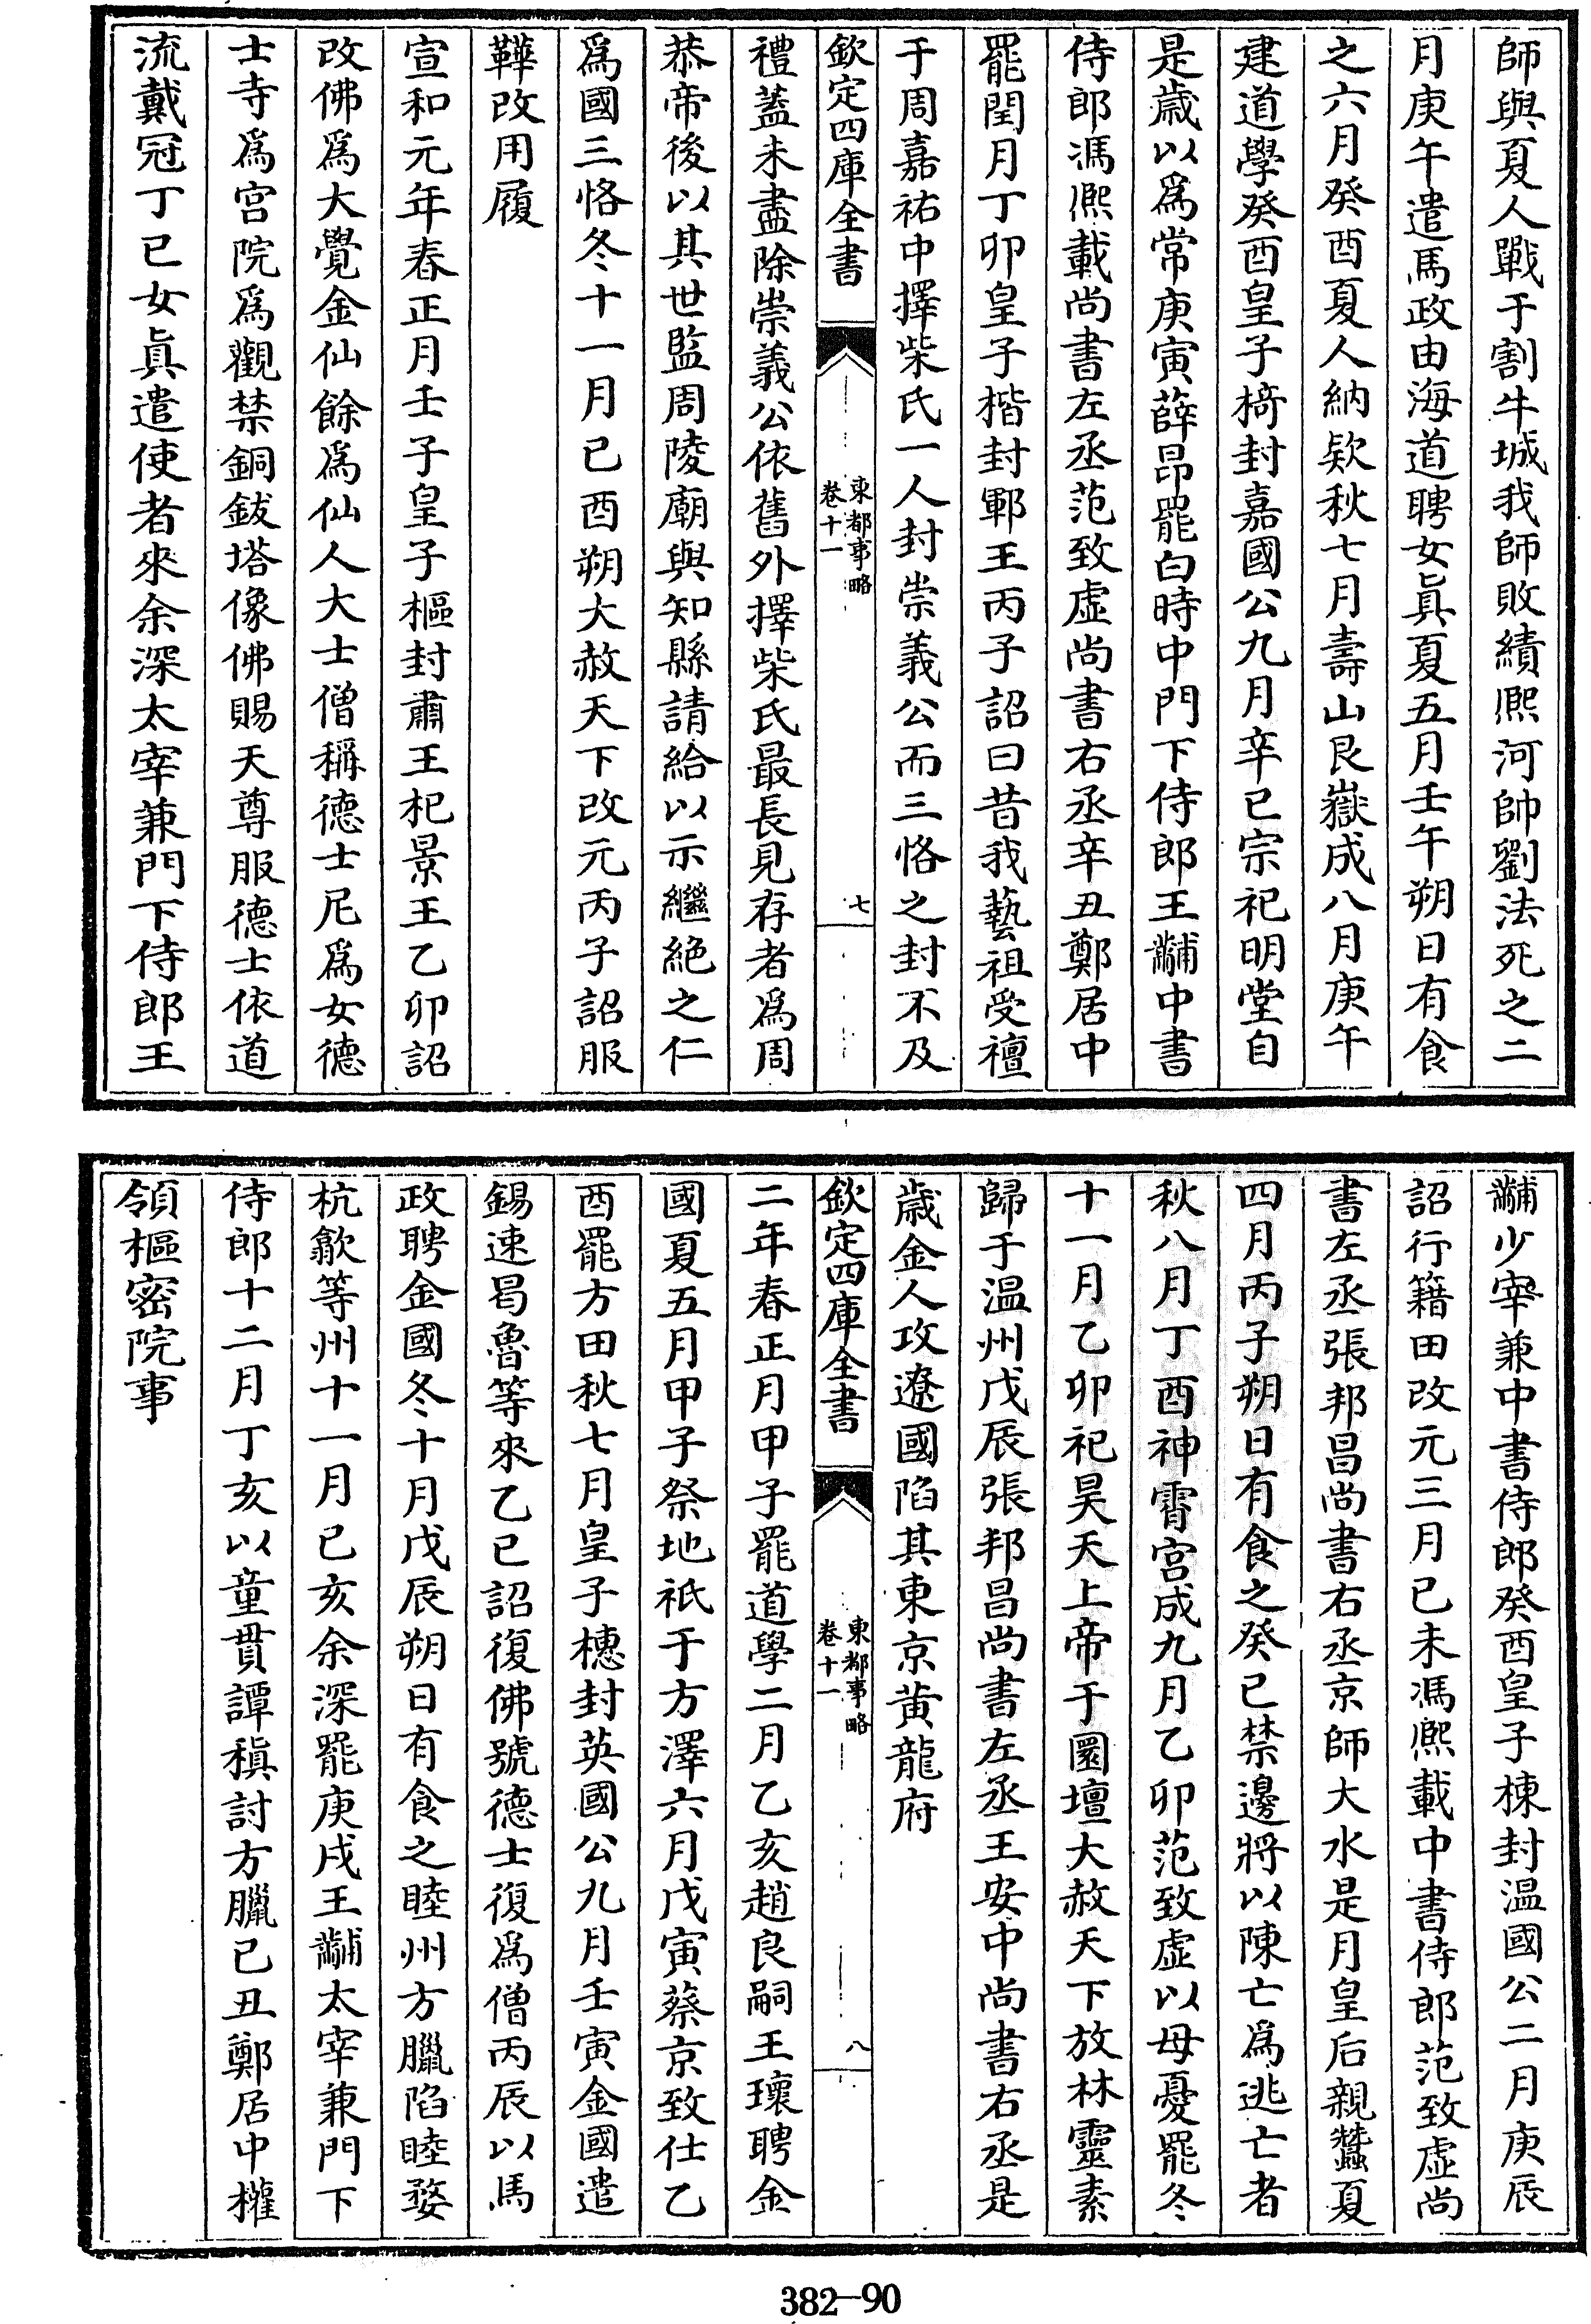 師與夏人戰于割牛城我師敗績熈河帥劉法死之二
月庚午遣馬政由海道聘女眞夏五月壬午朔日有食
之六月癸酉夏人納欵秋七月壽山艮嶽成八月庚午
建道學癸酉皇子椅封嘉國公九月辛巳宗祀明堂自
是歳以爲常庚寅薛昂罷白時中門下侍郎王黼中書
侍郎馮熈載尚書左丞范致虛尚書右丞辛丑鄭居中
罷閏月丁卯皇子楷封鄆王丙子詔曰昔我藝祖受禪
于周嘉祐中擇柴氏一人封崇義公而三恪之封不及
欽定四庫全書
東都事略
卷十一
七
禮蓋未盡除崇義公依舊外擇柴氏最長見存者爲周
恭帝後以其世監周陵廟與知縣請給以示繼絶之仁
爲國三恪冬十一月己酉朔大赦天下改元丙子詔服
鞾改用履
宣和元年春正月壬子皇子樞封肅王杞景王乙卯詔
改佛爲大覺金仙餘爲仙人大士僧稱德士尼爲女德
士寺爲宫院爲觀禁銅鈸塔像佛賜天尊服德士依道
流戴冠丁巳女眞遣使者來余深太宰兼門下侍郎王
黼少宰兼中書侍郎癸酉皇子棟封温國公二月庚辰
詔行籍田改元三月己未馮熈載中書侍郎范致虛尚
書左丞張邦昌尚書右丞京師大水是月皇后親蠶夏
四月丙子朔日有食之癸巳禁邊將以陳亡爲逃亡者
秋八月丁酉神霄宫成九月乙卯范致虛以母憂罷冬
十一月乙卯祀昊天上帝于圜壇大赦天下放林靈素
歸于温州戊辰張邦昌尚書左丞王安中尚書右丞是
歳金人攻遼國陷其東京黄龍府
欽定四庫全書
東都事略
卷十一
八
二年春正月甲子罷道學二月乙亥趙良嗣王瓌聘金
國夏五月甲子祭地祇于方澤六月戊寅蔡京致仕乙
酉罷方田秋七月皇子橞封英國公九月壬寅金國遣
錫速曷魯等來乙巳詔復佛號德士復爲僧丙辰以馬
政聘金國冬十月戊辰朔日有食之睦州方臘陷睦婺
杭歙等州十一月己亥余深罷庚戌王黼太宰兼門下
侍郎十二月丁亥以童貫譚稹討方臘己丑鄭居中權
領樞密院事
382-90